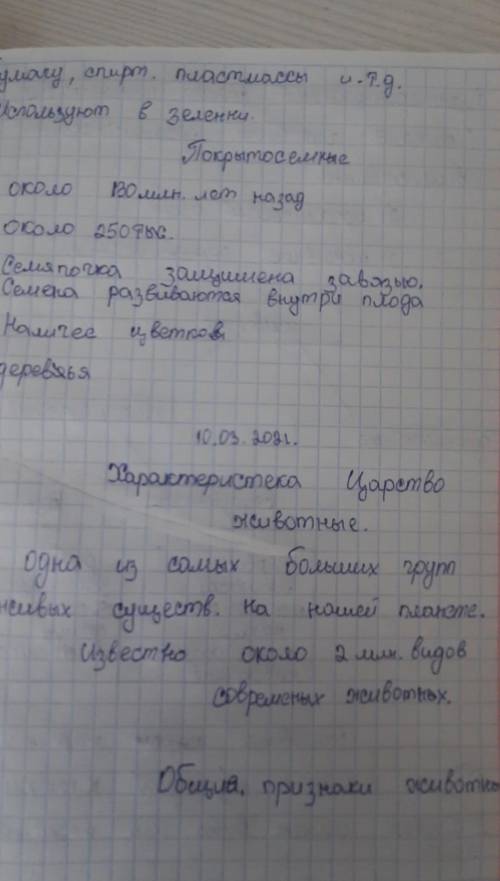 умагу, спирт. пластмассы и.т.д.
используют в зеленни.
Покрытосемные
около 130 млн. лет назад
около 250 тыс.
Семяпочка защишена завязью.
Семена развиваются внутри плода
Наличее цветков
деревья
10.03.2021.
Характеристека Царство
животные.
одна из самых больших групп
живых существ. на нашей планете.
Известно около 2 млн. видов
современых животных.
Общие, признаки животны